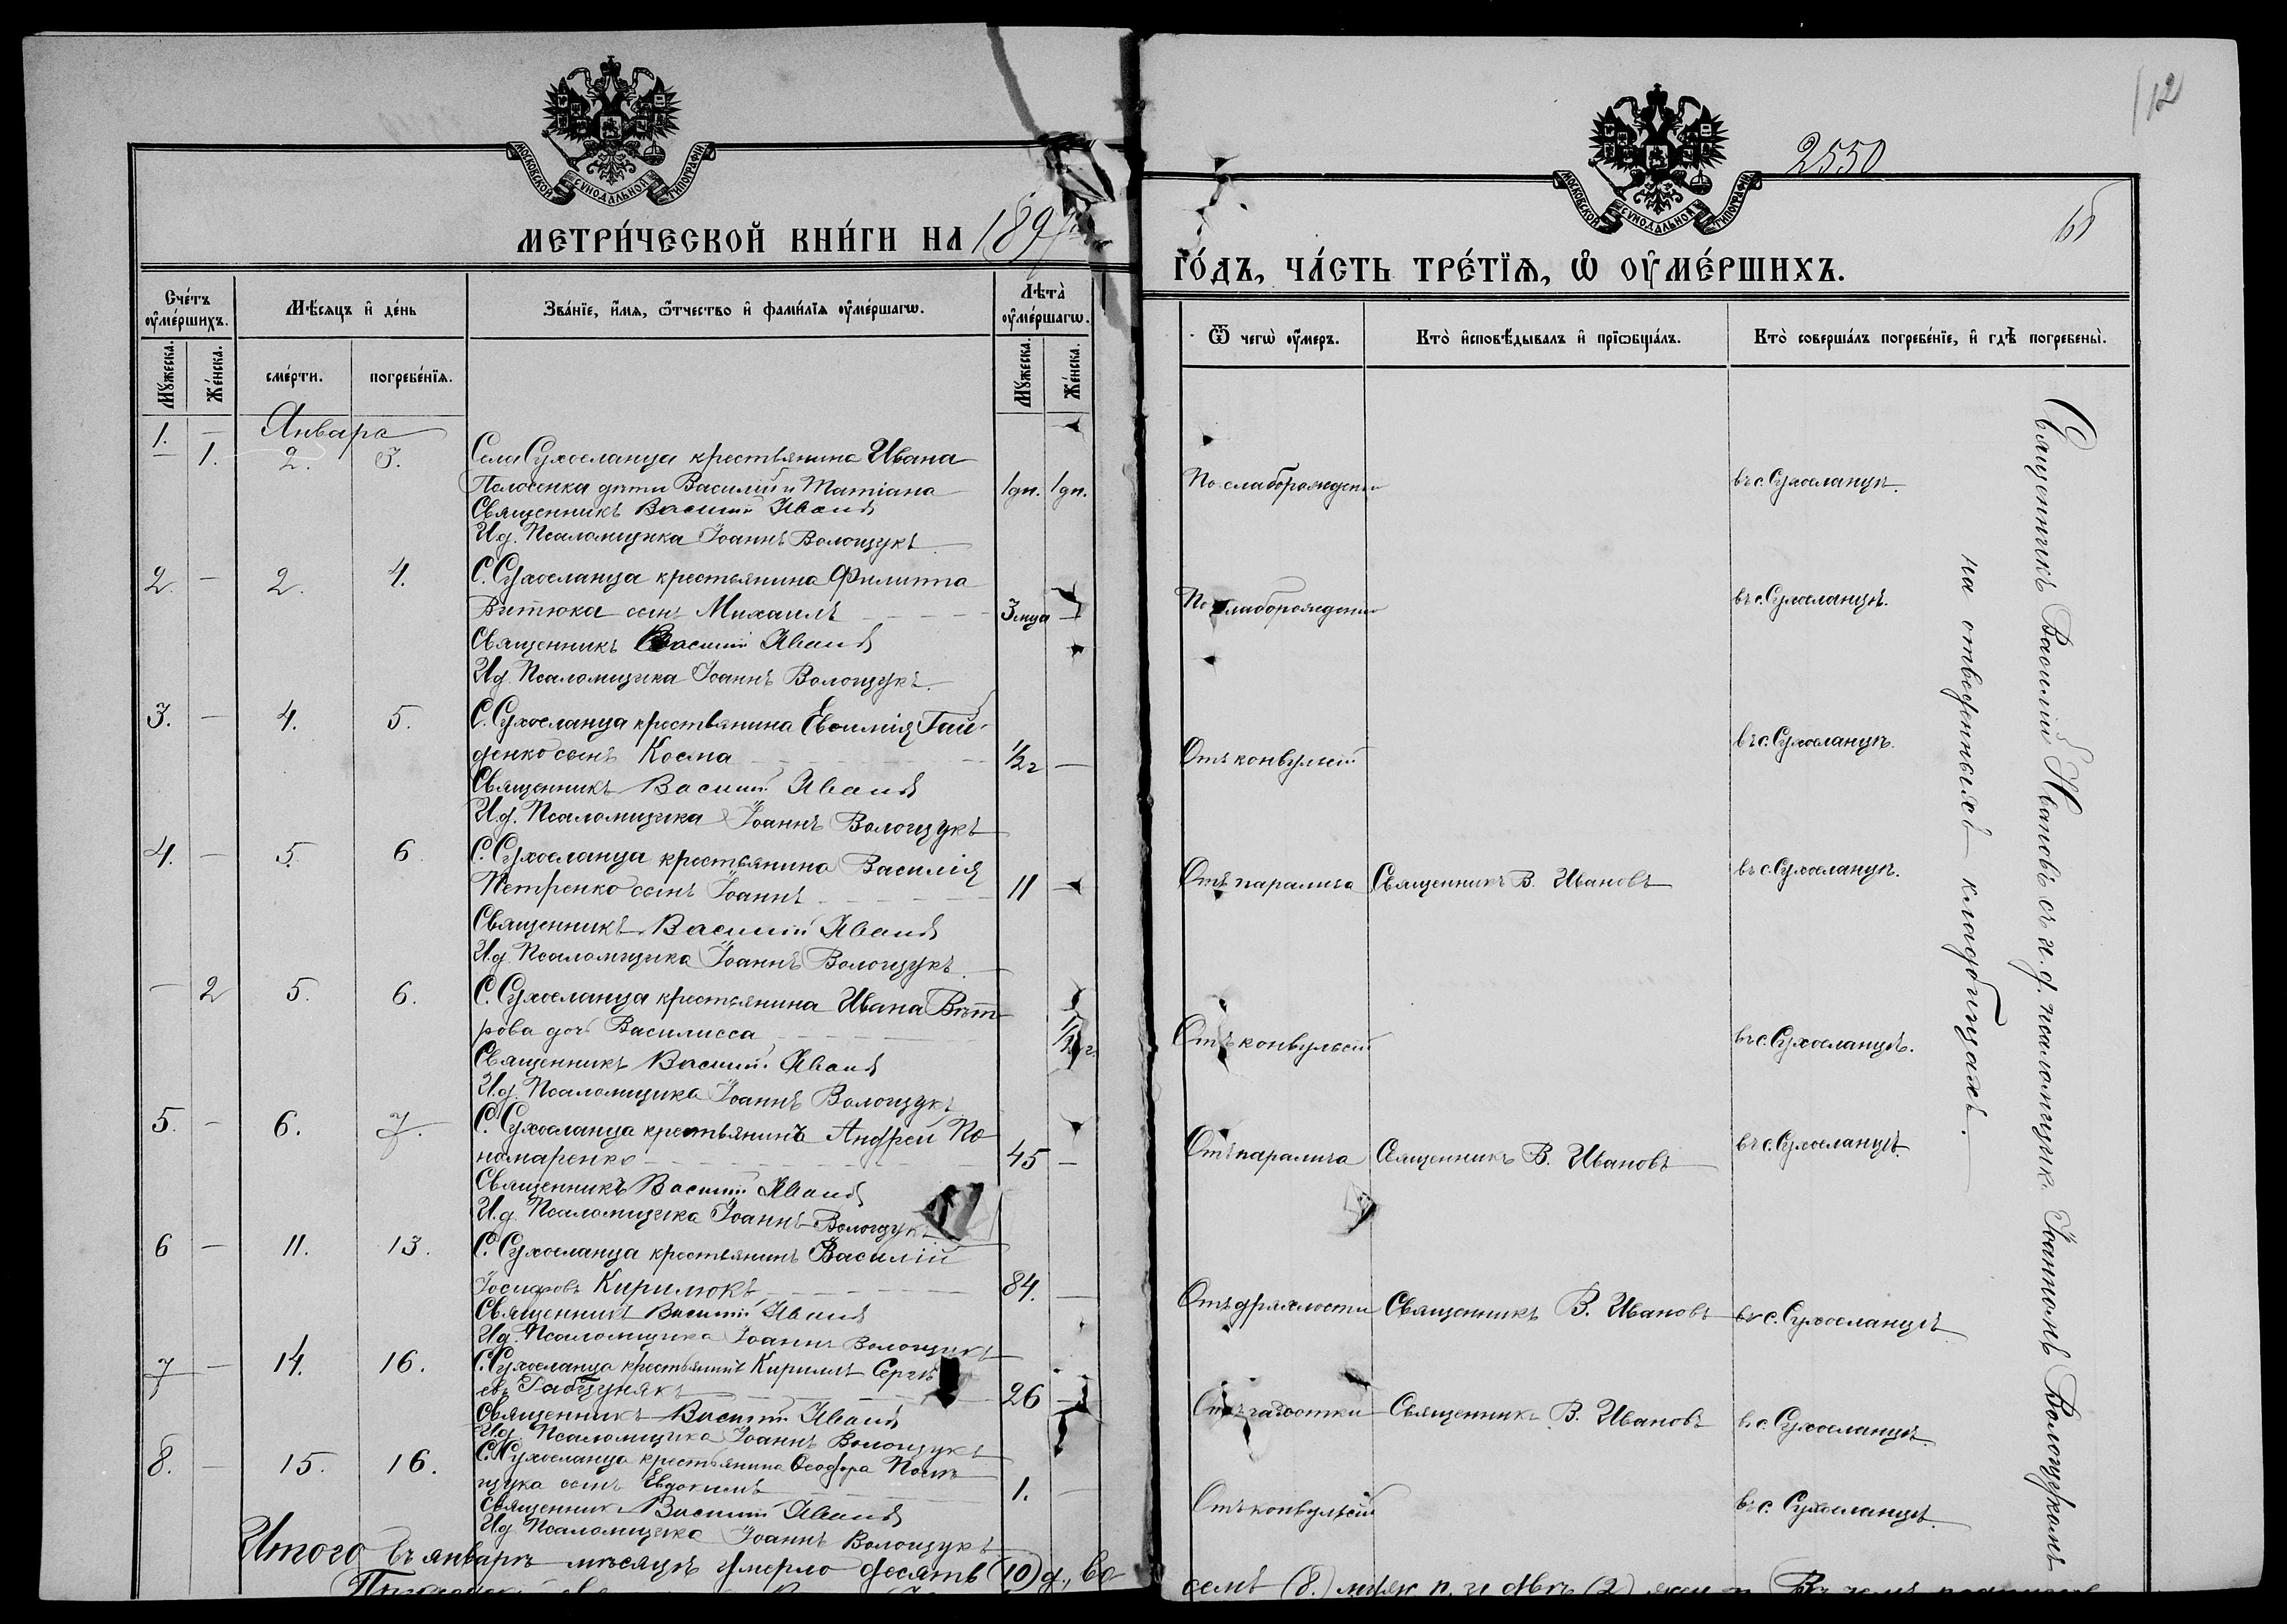 МОСКОВСКОЙ СУНОДАЛЬНОЙ ТИПОГРАФІИ
МЕТРИ́ЧЕСКОЙ КНИ́ГИ НА 1897
Сче́тъ ᲂу҆ме́ршихъ.
Мѣ́сяцъ и҆ де́нь
Зва́нїе, и҆́мѧ, ѻ҆́тчество и҆ фами́лїѧ ᲂу҆ме́ршагѡ.
Лѣ́та ᲂу҆ме́ршагѡ.
Мꙋ́жеска.
Же́нска.
сме́рти.
погребе́нїѧ.
Мꙋ́жеска.
Же́нска.
Января
1. —
— 1. 2. 3. Села Сухоеланца крестьянина Ивана
дѣти Василій и Татіана 1 дн. 1 дн.
Священникъ Василій Ивановъ
И.д. Псаломщика Іоаннъ Волощукъ
2. — 2. 4. С. Сухоеланца крестьянина Филиппа
Витюка сынъ Михаилъ 3 мца —
Священникъ Василій Ивановъ
И.д. Псаломщика Іоаннъ Волощукъ.
3. — 4. 5. С. Сухоеланца крестьянина Евѳимія Гай-
денко сынъ Косма ½ г —
Священникъ Василій Ивановъ
И.д. Псаломщика Іоаннъ Волощукъ
4. — 5. 6. С. Сухоеланца крестьянина Василія
Петренко сынъ Іоаннъ 11 —
Священникъ Василій Ивановъ
И.д. Псаломщика Іоаннъ Волощукъ.
— 2 5. 6. С. Сухоеланца крестьянина Ивана Вѣт-
рова дочь Василисса ½ г.
Священникъ Василій Ивановъ
И.д. Псаломщика Іоаннъ Волощукъ
5. — 6. 7. С. Сухоеланца крестьянинъ Андрей По-
номаренко 45 —
Священникъ Василій Ивановъ
И.д. Псаломщика Іоаннъ Волощукъ
6 — 11. 13. С. Сухоеланца крестьянинъ Василій
Іосифовъ Кирилюкъ 84. —
Священникъ Василій Ивановъ
И.д. Псаломщика Іоаннъ Волощукъ
7 — 14. 16. С. Сухоеланца крестьянинъ Кириллъ Сергѣ
евъ 26 —
Священникъ Василій Ивановъ
И.д. Псаломщика Іоаннъ Волощукъ
8. — 15. 16. С. Сухоеланца крестьянина Ѳеодора
сынъ Евдокимъ 1. —
Священникъ Василій Ивановъ
И.д. Псаломщика Іоаннъ Волощукъ
Итого въ январѣ мѣсяцѣ умерло десять (10) д., во
12
2550
МОСКОВСКОЙ СУНОДАЛЬНОЙ ТИПОГРАФІИ
ГО́ДЪ, ЧА́СТЬ ТРЕ́ТЇѦ, Ѡ҆ ОУ҆МЕ́РШИХЪ.
Ѿ чегѡ̀ ᲂу҆́меръ.
Кто̀ и҆сповѣ́дывалъ и҆ прїѡбща́лъ.
Кто̀ соверша́лъ погребе́нїе, и҆ гдѣ̀ погребены̀.
По слаборожденію въ с. Сухоеланцѣ.
По слаборожденію въ с. Сухоеланцѣ.
Отъ конвульсій въ с. Сухоеланцѣ.
Отъ паралича Священникъ В. Ивановъ въ с. Сухоеланцѣ.
Отъ конвульсій въ с. Сухоеланцѣ.
Отъ паралича Священникъ В. Ивановъ въ с. Сухоеланцѣ.
Отъ дряхлости Священникъ В. Ивановъ въ с. Сухоеланцѣ
Отъ чахотки Священникъ В. Ивановъ въ с. Сухоеланцѣ.
Отъ конвульсій въ с. Сухоеланцѣ.
Священникъ Василій Ивановъ съ и.д. псаломщика Іоанномъ Волощукомъ
на отведенныхъ кладбищахъ.
семь (8.) муж. п. и двѣ (2)